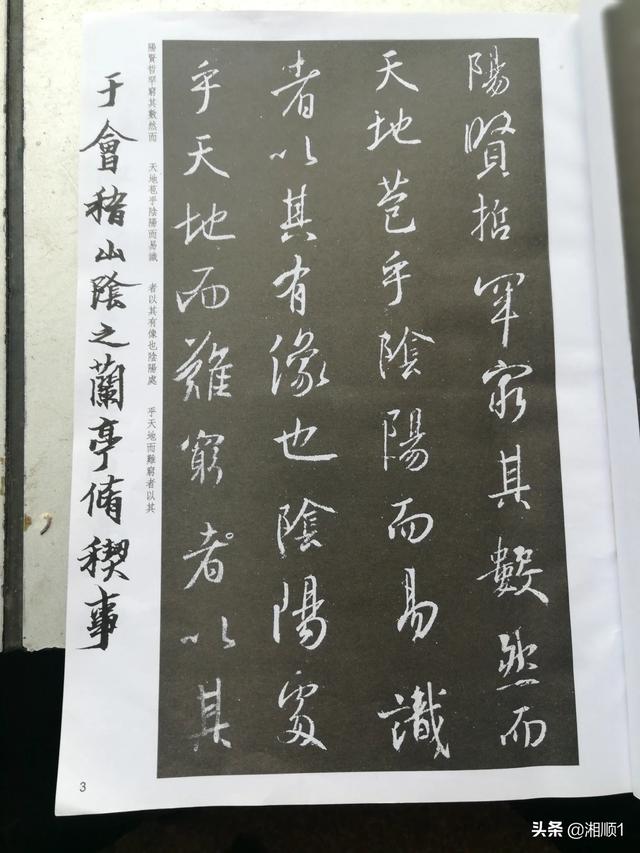 陽賢哲罕窮其數然而
天地苞乎陰陽而易識
者以其有像也陰陽處
乎天地而難窮者以其
陽賢哲罕窮其數然而 天地苞乎陰陽而易識 者以其有像也陰陽處 乎天地而難窮者以其
于會稽山陰之蘭亭脩稧事
3
头条 @湘顺1